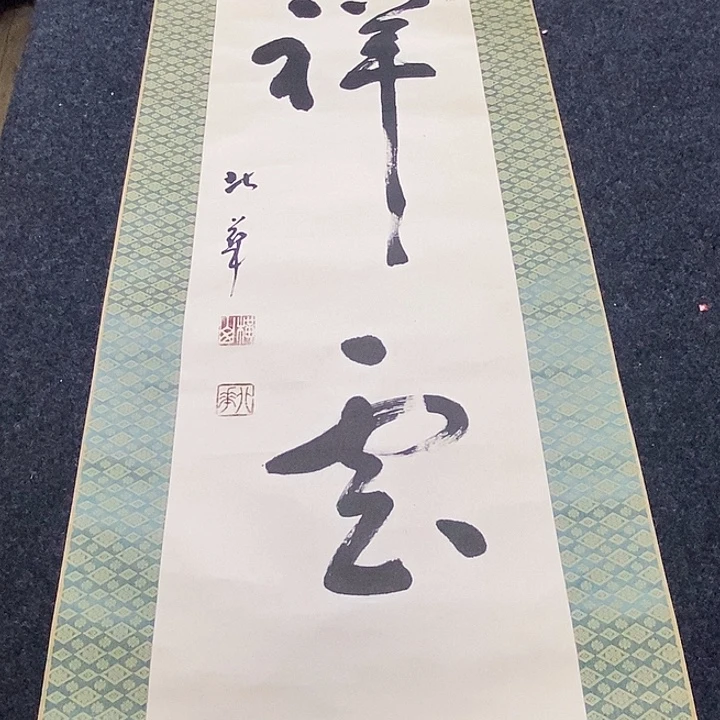 祥雲
北華